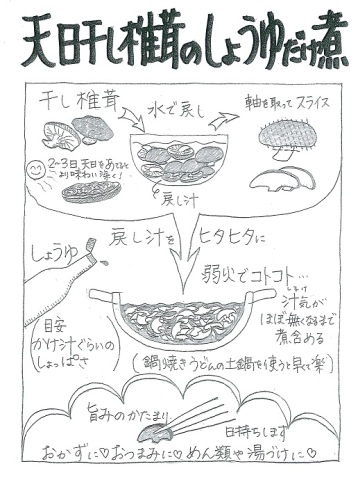 天日干し椎茸のしょうゆだけ煮
干し椎茸
水で戻し
軸を取ってスライス
2~3日天日をあてると
より味わい深く!
戻し汁
しょうゆ
戻し汁を
ヒタヒタに
弱火でコトコト…
しるけ
汁気が
ほぼ無くなるまで
煮含める
目安
かけ汁ぐらいの
しょっぱさ
(鍋焼きうどんの土鍋を使うと早くて楽)
旨みのかたまり
日持ちします
おかずに♡おつまみに♡めん類や湯づけに♡